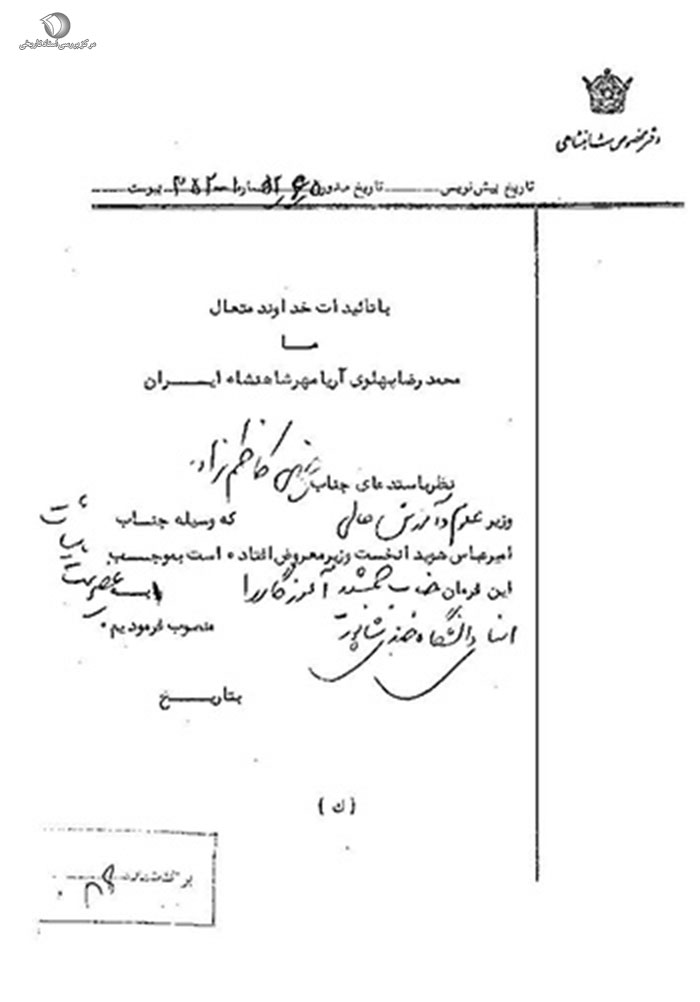 مرکز بررسی اسناد تاریخی
دفتر مخصوص شاهنشاهی
تاریخ پیش نویس ........ تاریخ صدور ........ پیوست ........
با تائیدات خداوند متعال
ما
محمد رضا پهلوی آریامهر شاهنشاه ایران
نظر باستدعای جناب کاظم زاده
وزیر علوم و آموزش عالی که وسیله جناب
امیرعباس هویدا نخست وزیر معروض افتاده است بموجب
این فرمان جناب جمشید آموزگار را بسمت عضویت هیأت
امنا دانشگاه جندی شاپور منصوب فرمودیم.
بتاریخ
(ك)